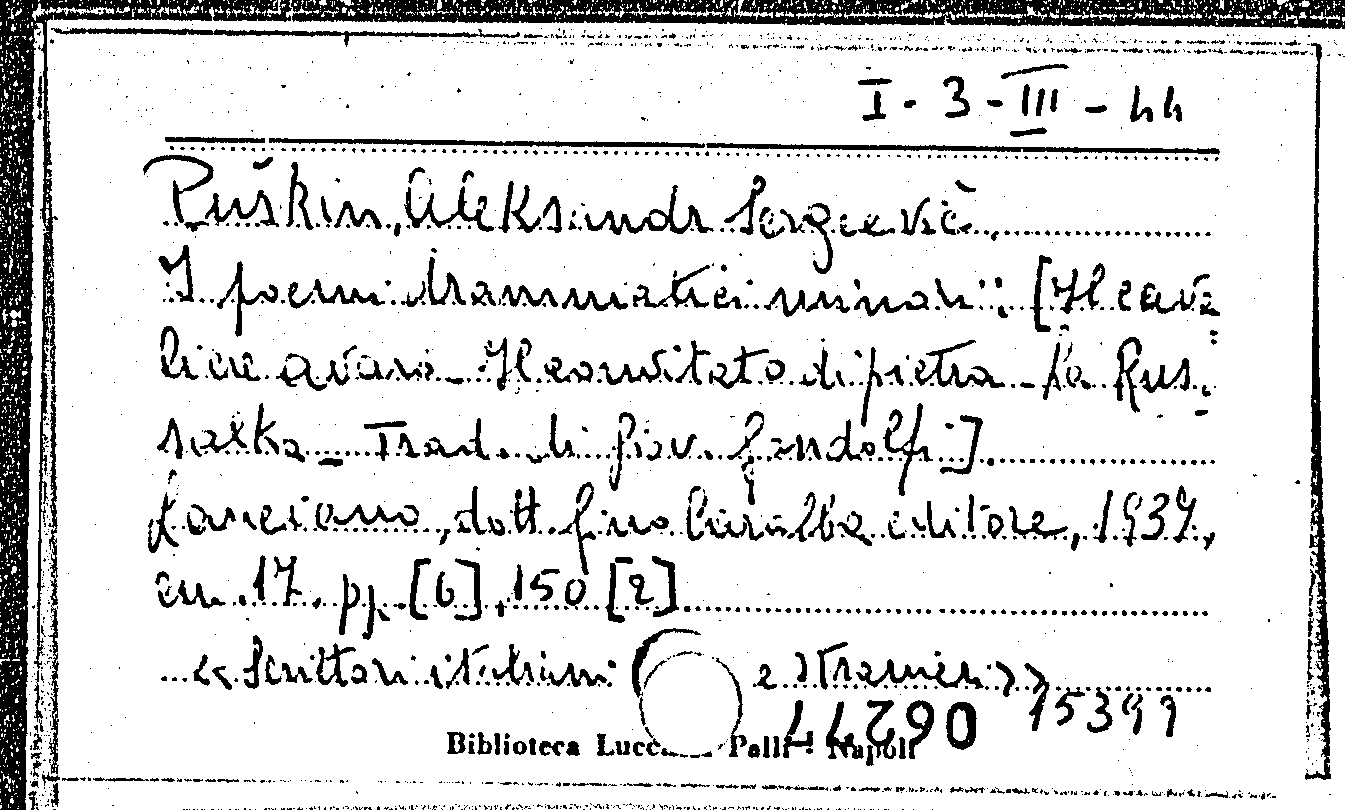 I - 3 - III - 44
Puškin, Aleksandr Sergeevič.
I poemi drammatici minori: [Il cava
liere avaro - Il convitato di pietra - La Rus-
salka - Trad. di Giov. Gandolfi].
Lanciano, dott. Gino Carabba editore, 1937,
cm. 17. pp. [6], 150 [2].
<< Scrittori italiani e stranieri >>
06277 15399
Biblioteca Lucc Palli - Napoli